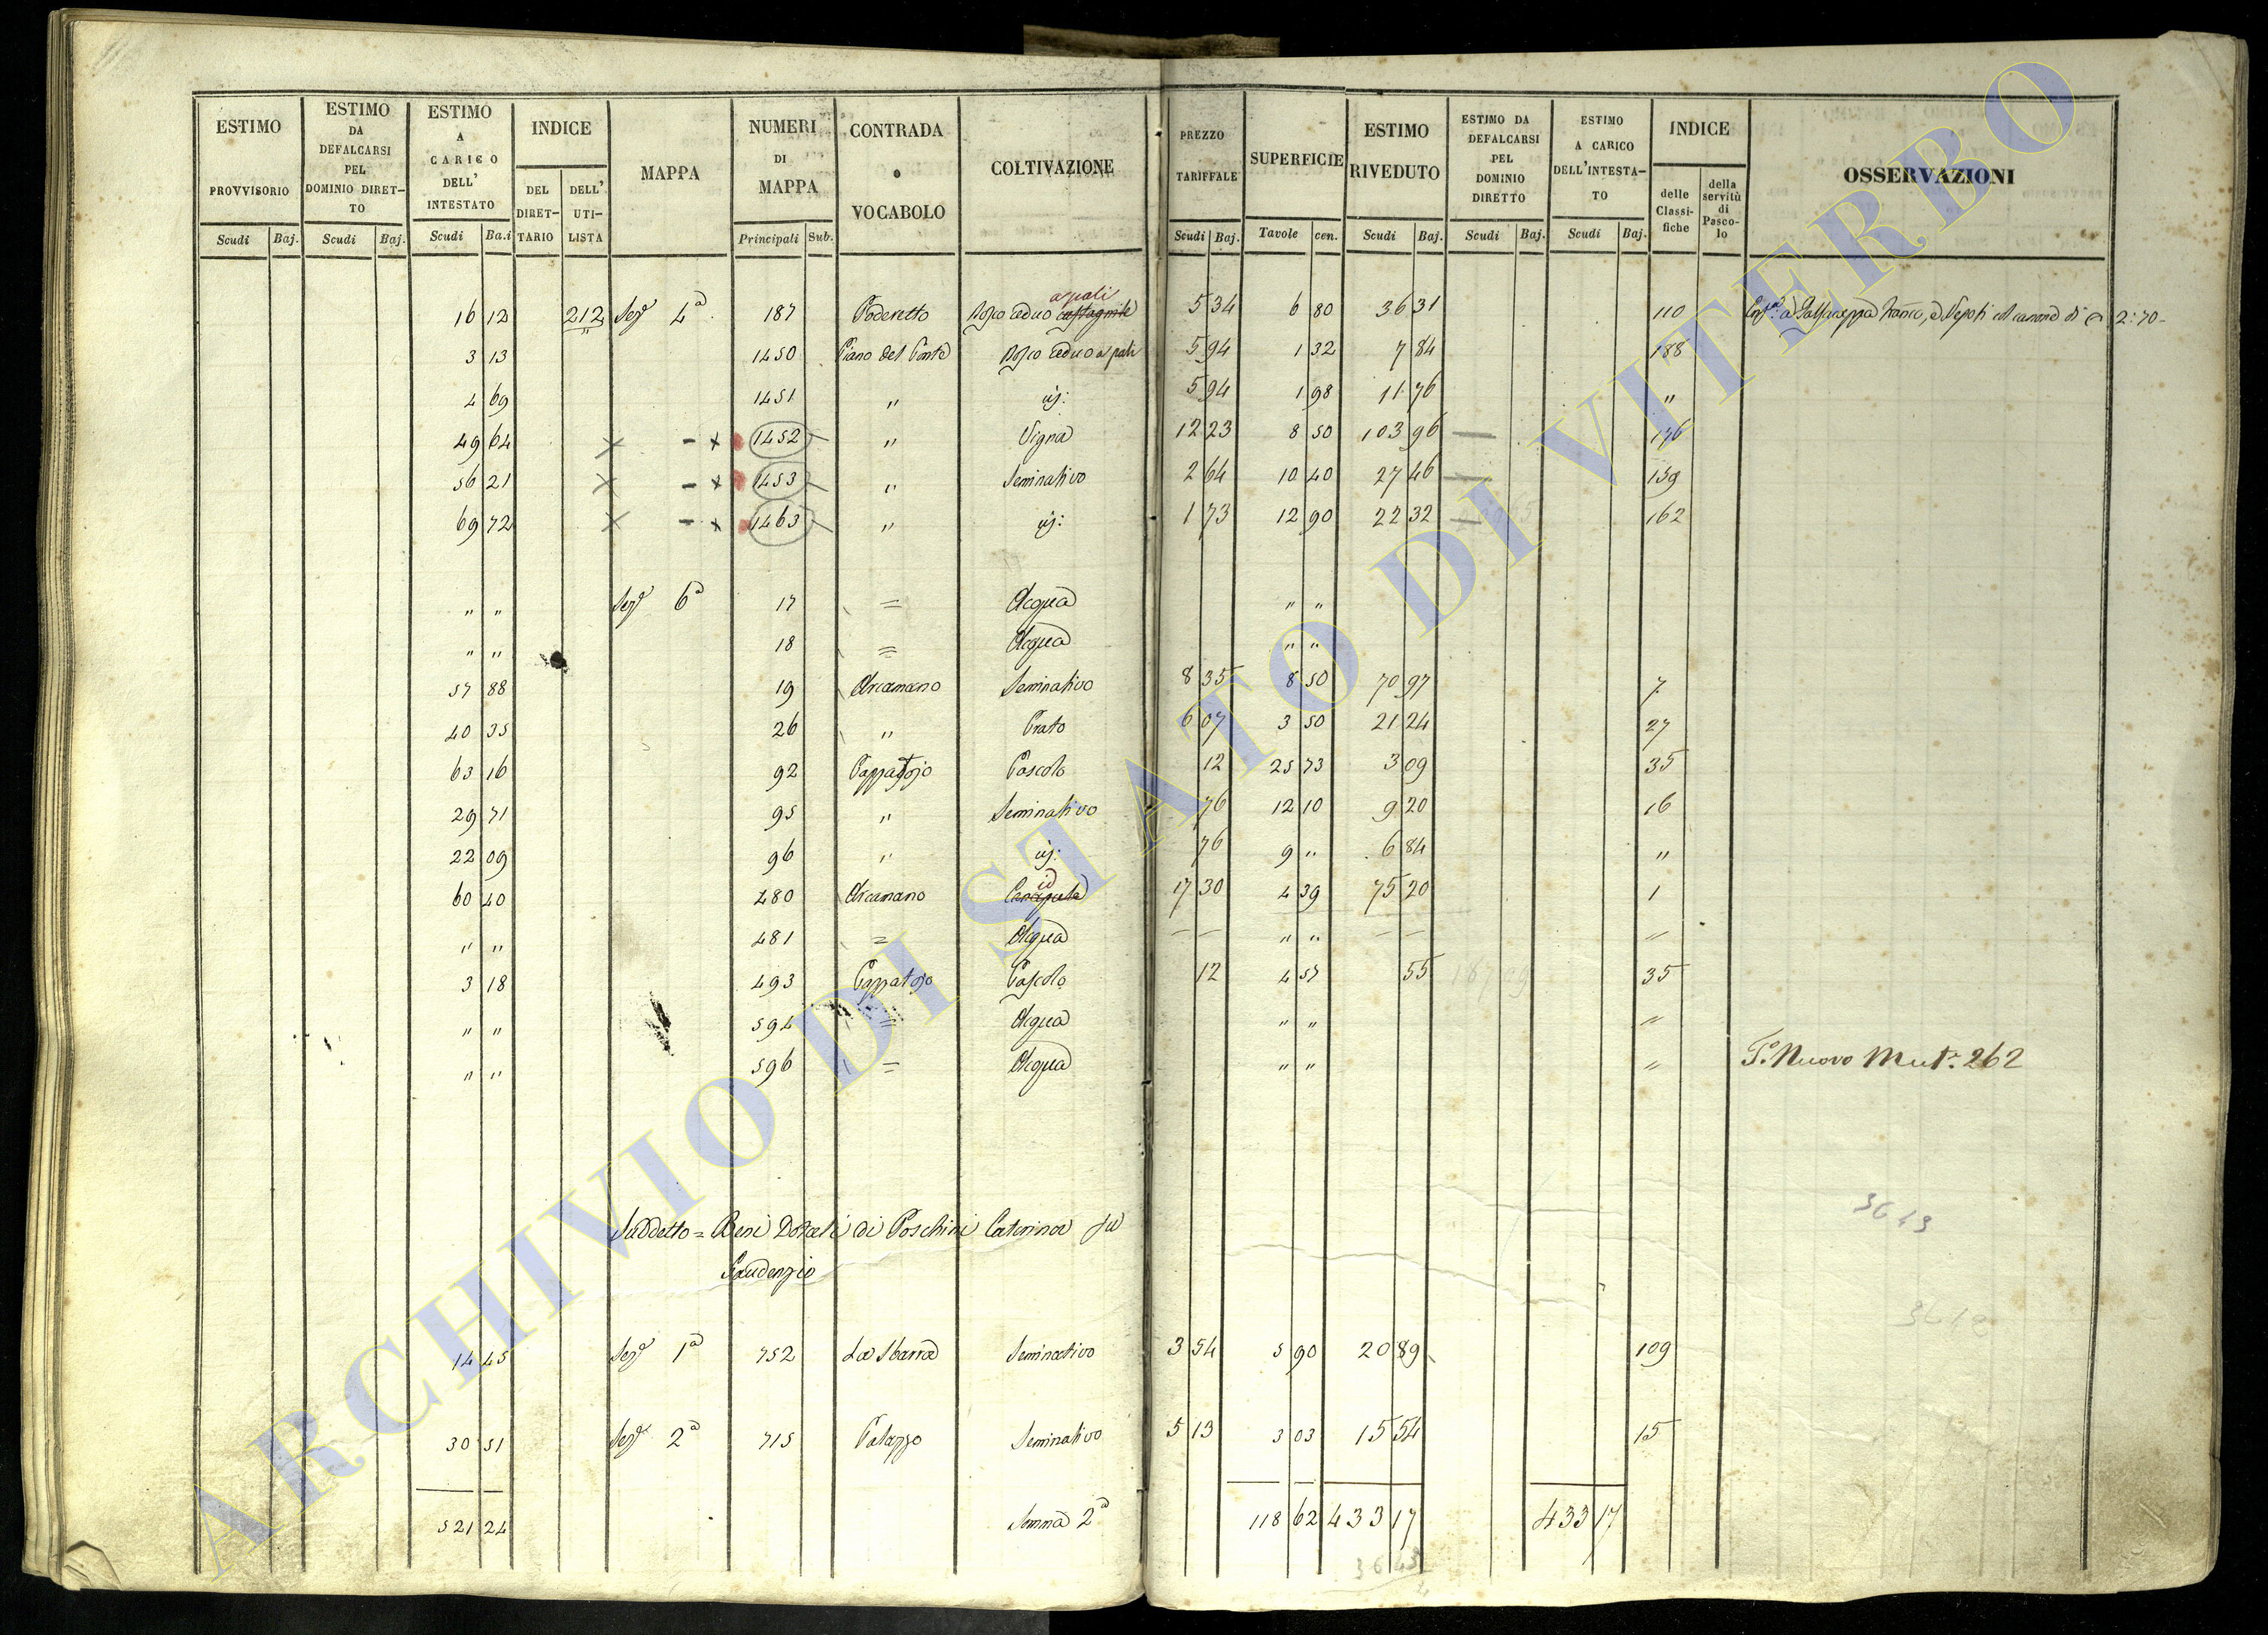 ESTIMO PROVVISORIO | ESTIMO DA DEFALCARSI PEL DOMINIO DIRET-TO | ESTIMO A CARICO DELL' INTESTATO | INDICE | MAPPA | NUMERI DI MAPPA | CONTRADA o VOCABOLO | COLTIVAZIONE | PREZZO TARIFFALE | SUPERFICIE | ESTIMO RIVEDUTO | ESTIMO DA DEFALCARSI PEL DOMINIO DIRETTO | ESTIMO A CARICO DELL'INTESTA-TO | INDICE | OSSERVAZIONI
DEL DIRET-TARIO | DELL' UTI-LISTA | delle Classi-fiche | della servitù di Pasco-lo
Scudi | Baj. | Scudi | Baj. | Scudi | Ba.i | Principali | Sub. | Scudi | Baj. | Tavole | cen. | Scudi | Baj. | Scudi | Baj. | Scudi | Baj.
a pali
16 12 | 212 | Sezᵉ 4ᵃ | 187 | Poderetto | Bosco Ceduo castagnile | 5 34 | 6 80 | 36 31 | 110 | 2:70
3 13 | 1450 | Piano del Ponte | Bosco Ceduo a pali | 5 94 | 1 32 | 7 84 | 188
4 69 | 1451 | " | id: | 5 94 | 1 98 | 11 76 | "
49 64 | 1452 | " | Vigna | 12 23 | 8 50 | 103 96 | 176
56 21 | 1453 | " | Seminativo | 2 64 | 10 40 | 27 46 | 159
69 72 | 1463 | " | id: | 1 73 | 12 90 | 22 32 | 162
" " | Sezᵉ 6ᵃ | 17 | = | Acqua | " "
" " | 18 | = | Acqua | " "
57 88 | 19 | Arcamano | Seminativo | 8 35 | 8 50 | 70 97 | 7
40 35 | 26 | " | Prato | 6 07 | 3 50 | 21 24 | 27
63 16 | 92 | Pascolo | 12 | 25 73 | 3 09 | 35
29 71 | 95 | " | Seminativo | 76 | 12 10 | 9 20 | 16
22 09 | 96 | " | id: | 76 | 9 " | 6 84 | "
id
60 40 | 480 | Arcamano | Canapule | 17 30 | 4 39 | 75 20 | 1
" " | 481 | = | Acqua | " "
3 18 | 493 | Pascolo | 12 | 4 57 | 55 | 35
" " | 594 | = | Acqua | " " | "
" " | 596 | = | Acqua | " " | " | T.º Nuovo Mut.ª 262
3643
Suddetto = Beni Dotali di Poschini Caterina fu
Gaudenzio
3642
14 45 | Sezᵉ 1ᵃ | 752 | La Sbarra | Seminativo | 3 54 | 5 90 | 20 89 | 109
30 51 | Sezᵉ 2ᵃ | 715 | Palazzo | Seminativo | 5 13 | 3 03 | 15 54 | 15
521 24 | Somma 2ᵃ | 118 62 | 433 17 | 433 17
3643
ARCHIVIO DI STATO DI VITERBO